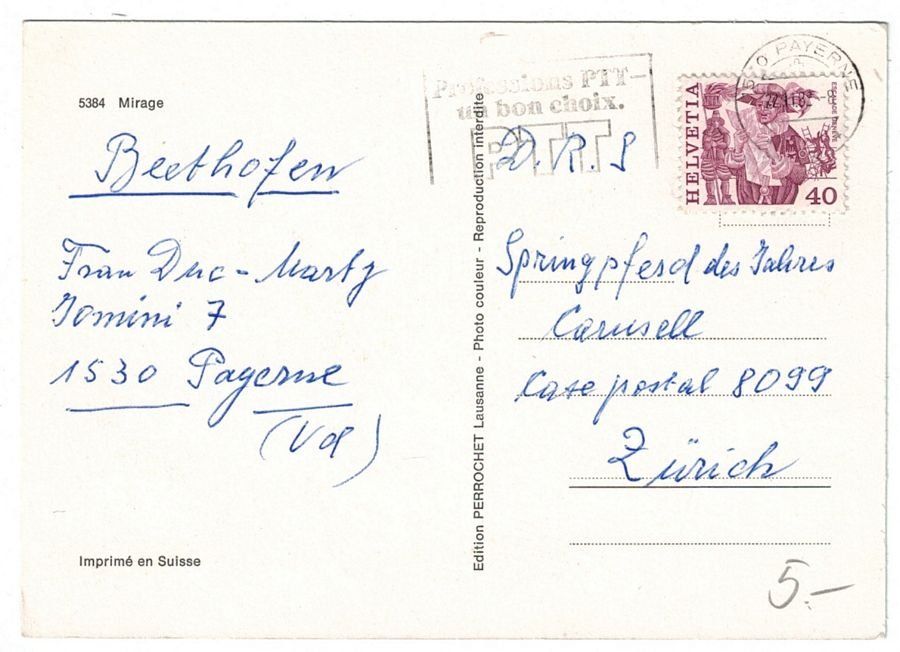 5384 Mirage
Beethofen
Frau Duc-Marty
Jomini 7
1530 Payerne
(Vd)
Imprimé en Suisse
Edition PERROCHET Lausanne - Photo couleur - Reproduction interdite
Professions PTT-
un bon choix.
PTT
1530 PAYERNE
HELVETIA
ESCALADE GENÈVE
40
D.R.S
Springpferd des Jahres
Carusell
Case postal 8099
Zürich
5.-